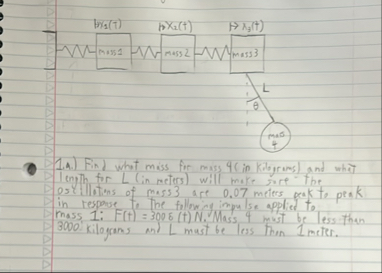 ↦x₁(t) ↦x₂(t) ↦x₃(t)
mass1 mass2 mass3
L
θ
mass
4
1.a.) Find what mass for mass 4 (in kilograms) and what
length for L (in meters) will make sure the
oscillations of mass3 are 0.07 meters peak to peak
in response to the following impulse applied to
mass 1: F(t) = 300δ(t) N. Mass 4 must be less than
3000 kilograms and L must be less than 1 meter.